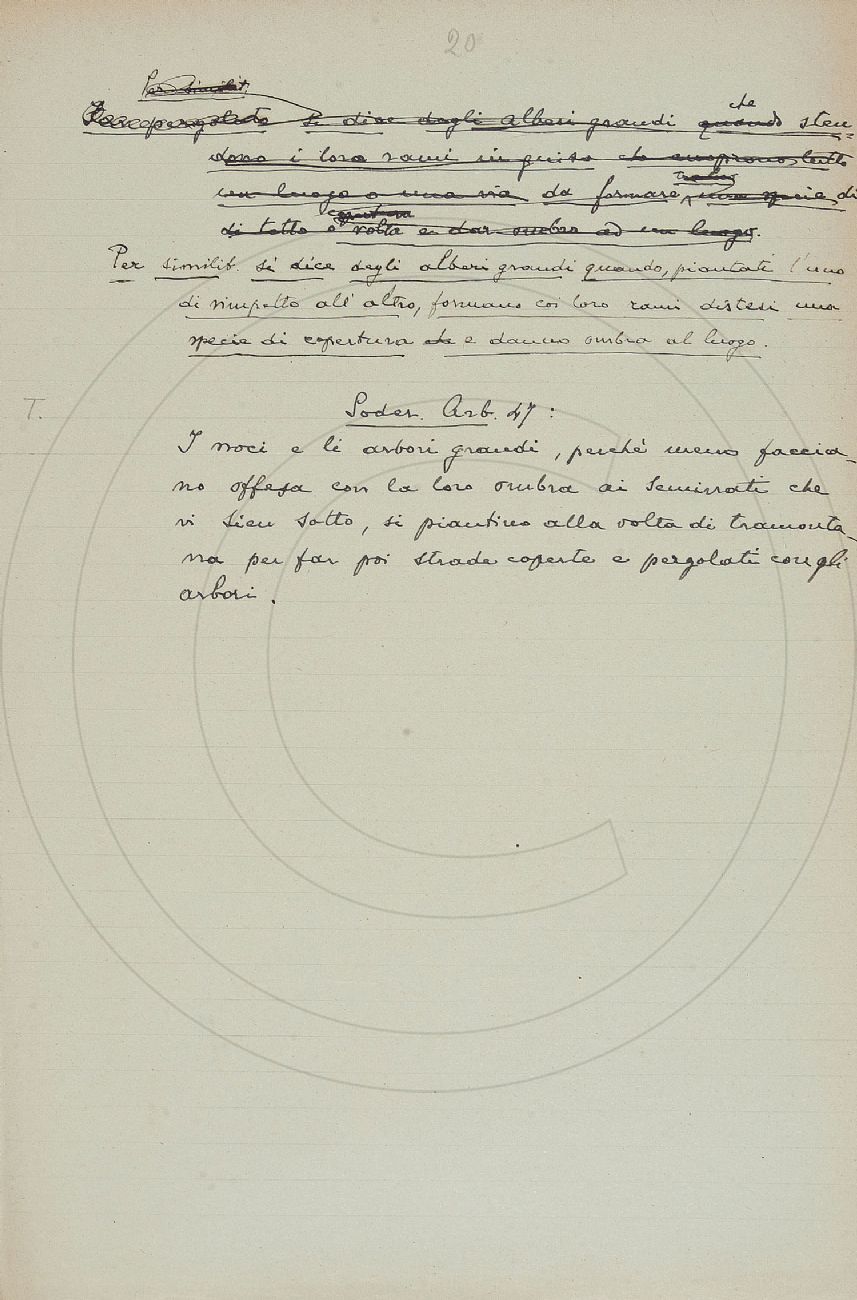 20
Per similit.
che
si dice degli alberi grandi quando sten-
dono i loro rami in guisa che tutto
un luogo o una via da formare una specie di
copertura
di tetto o volta e dar ombra ad un luogo.
Per similit. si dice degli alberi grandi quando, piantati l'uno
di rimpetto all'altro, formano coi loro rami distesi una
specie di copertura che e danno ombra al luogo.
T.
Soder. Arb. 47:
I noci e li arbori grandi, perchè meno faccia-
no offesa con la loro ombra ai seminati che
vi sien sotto, si piantino alla volta di tramonta-
na per far poi strade coperte e pergolati con gli
arbori.